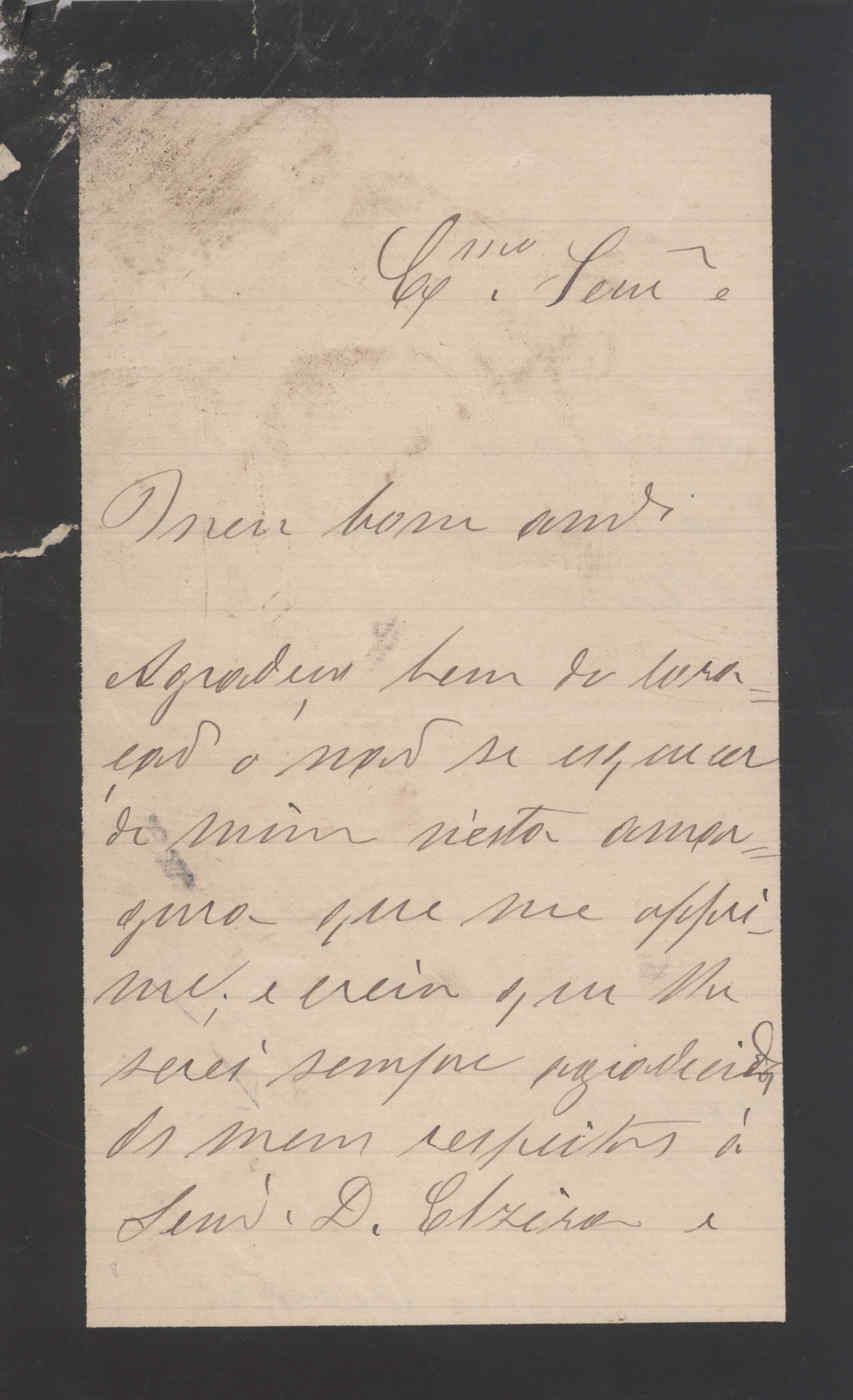 Exmo. Senr e
Meu bom amo.
Agradeço bem do cora=
çaõ o naõ se esquecer
de mim n'esta amar=
gura que me oppri-
me; e creia que lhe
serei sempre agradecido,
Os meus respeitos á
Senra. D. Elzira e